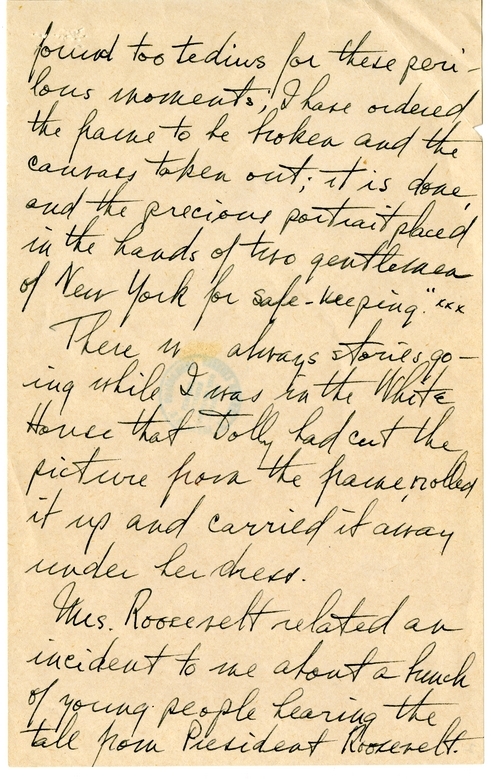 found too tedius for these peri-
lous moments; I have ordered
the frame to be broken and the
canvass taken out; it is done,
and the precious portrait placed
in the hands of two gentlemen
of New York for safe-keeping." xxx
There w always stories go-
ing while I was in the White
House that Dolly had cut the
picture from the frame, rolled
it up and carried it away
under her dress.
Mrs. Roosevelt related an
incident to me about a bunch
of young people hearing the
tale from President Roosevelt.